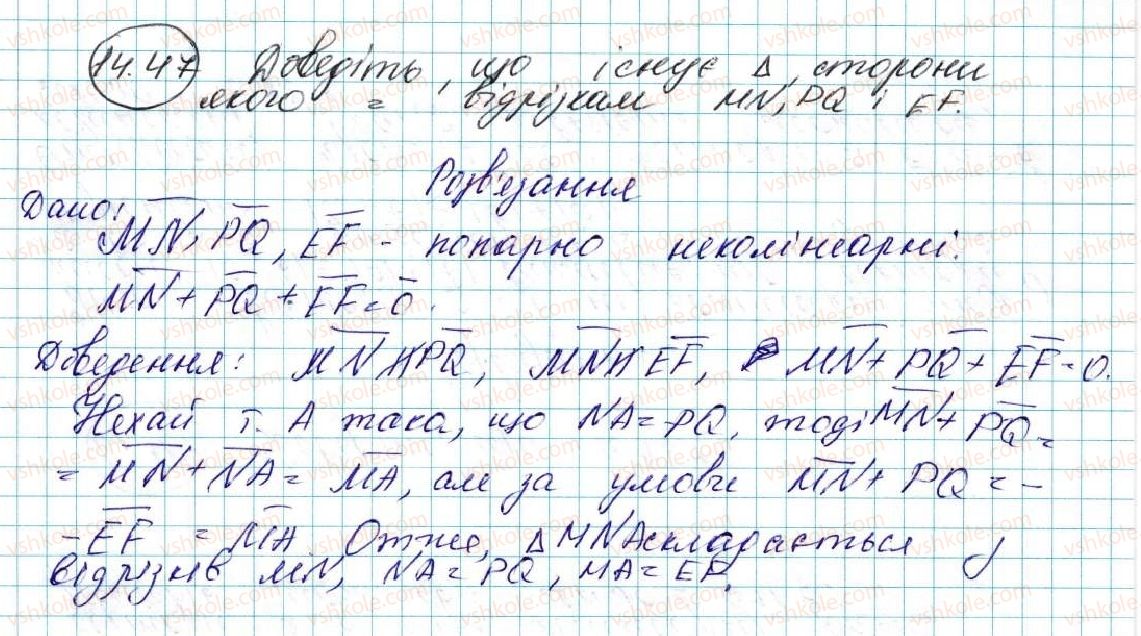 14.47 Доведіть, що існує Δ, сторони
якого = відрізкам MN, PQ і EF.
Розв'язання
Дано:
MN, PQ, EF - попарно неколінеарні.
MN + PQ + EF = 0.
Доведення: MN ∦ PQ, MN ∦ EF, MN + PQ + EF = 0.
Нехай т. A така, що NA = PQ, тоді MN + PQ =
= MN + NA = MA, але за умови MN + PQ = -
- EF = MA. Отже, Δ MNA складається з
відрізків MN, NA = PQ, MA = EF.